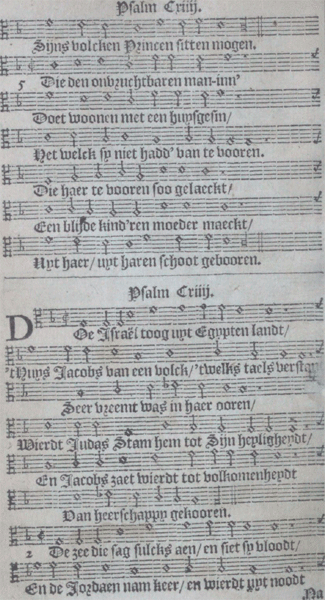 Psalm Cxiij.
Sijns volcken Princen sitten mogen.
5 Die den onvruchtbaren man-inn'
Doet woonen met een huysgesin/
Het welck sy niet hadd' van te vooren.
Die haer te vooren soo gelaeckt/
Een blijde kind'ren moeder maeckt/
Uyt haer/ uyt haren schoot gebooren.
Psalm Cxiiij.
DOe Israël toog uyt Egypten landt/
't Huys Jacobs van een volck/ 'twelks taels verstan
Seer vreemt was in haer ooren/
Wierdt Judas Stam hem tot Sijn heyligheydt/
En Jacobs zaet wierdt tot volkomenheydt
Van heerschappy gekooren.
2 De zee die sag sulcks aen/ en siet sy vloodt/
En de Jordaen nam keer/ en wierdt uyt noodt
Na